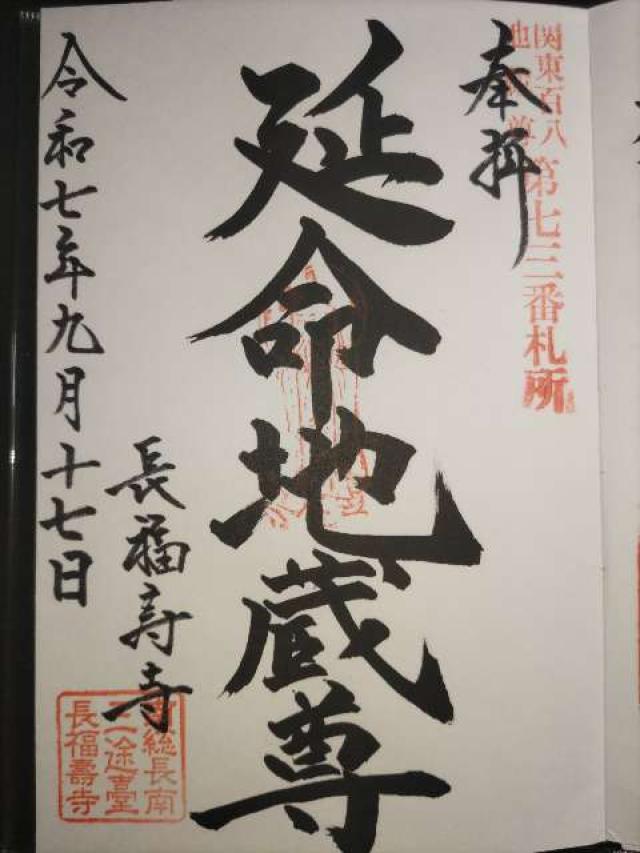 奉拝
関東百八
地蔵尊
第七三番札所
延命地蔵尊
長福寿寺
令和七年九月十七日
総長南
三途臺
長福壽寺